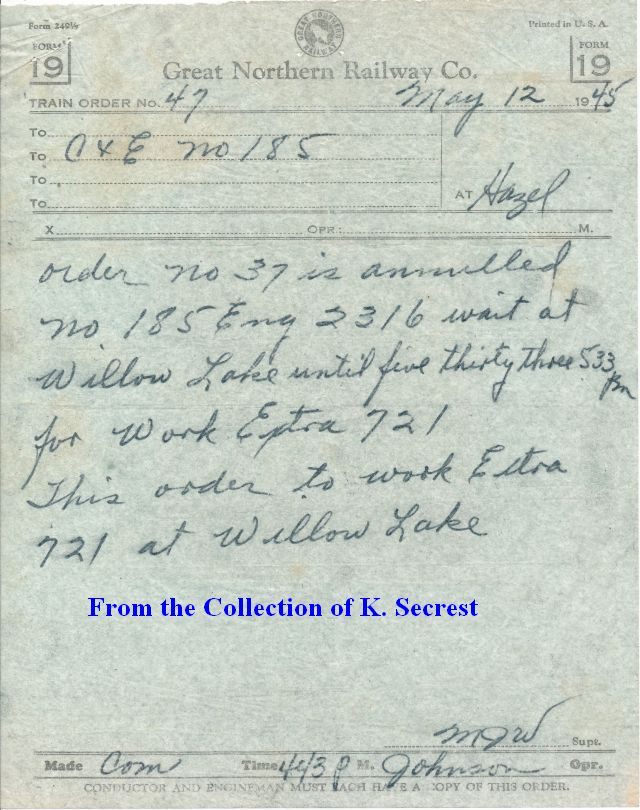 Form 249½
Printed in U. S. A.
GREAT NORTHERN RAILWAY
FORM 19
FORM 19
Great Northern Railway Co.
TRAIN ORDER No. 47 May 12 1945
To
To C & E no 185
To
To
AT Hazel
X OPR: M.
order no 37 is annulled
no 185 Eng 2316 wait at
Willow Lake until five thirty three 533 pm
for Work Extra 721
This order to work Extra
721 at Willow Lake
From the Collection of K. Secrest
MJW Supt.
Made Com Time 443 p M. Johnson Opr.
CONDUCTOR AND ENGINEMAN MUST EACH HAVE A COPY OF THIS ORDER.